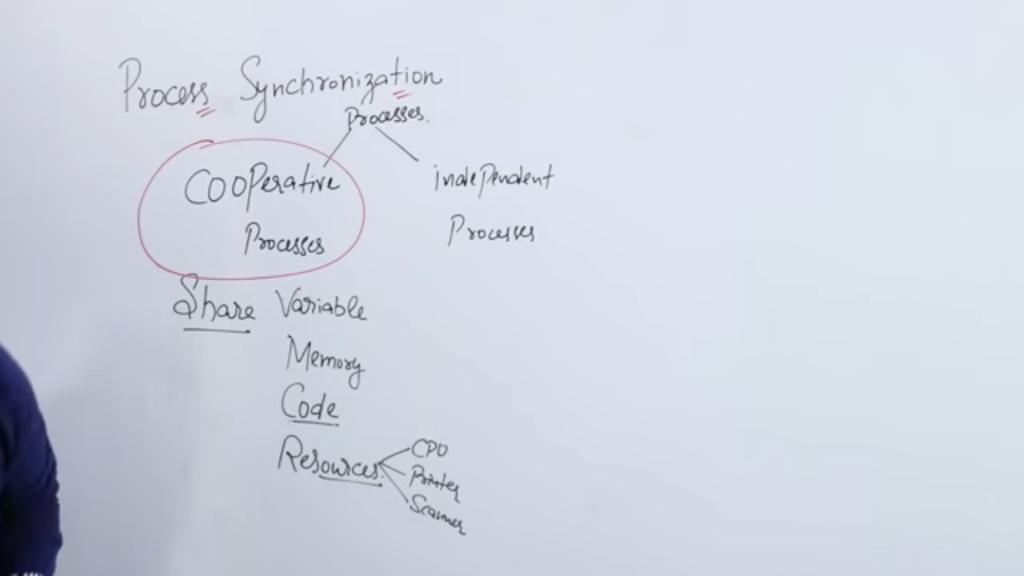 Process Synchronization
Processes.
Cooperative
Processes
independent
Processes
Share Variable
Memory
Code
Resources.
CPU
Printer
Scanner